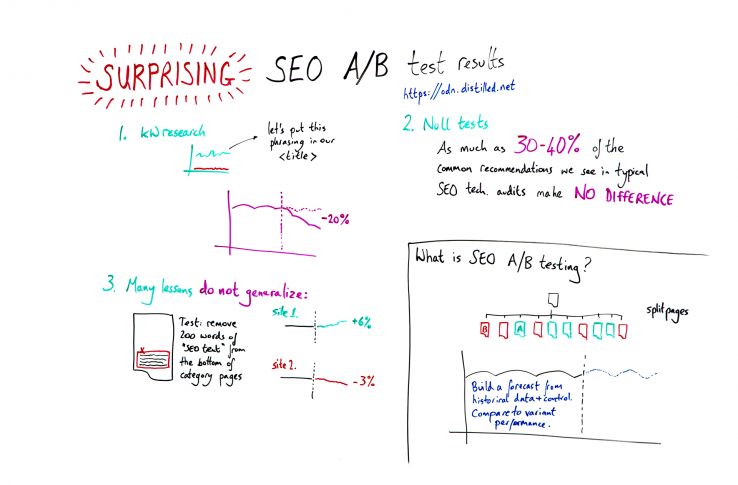 SURPRISING SEO A/B test results
https://odn.distilled.net
1. KW research
let's put this
phrasing in our
<title>
-20%
2. Null tests
As much as 30-40% of the
common recommendations we see in typical
SEO tech. audits make NO DIFFERENCE
3. Many lessons do not generalize:
Test: remove
200 words of
"SEO text" from
the bottom of
category pages
x
site 1.
+6%
site 2.
-3%
What is SEO A/B testing?
split pages
B
A
Build a forecast from
historical data + control.
Compare to variant
performance.